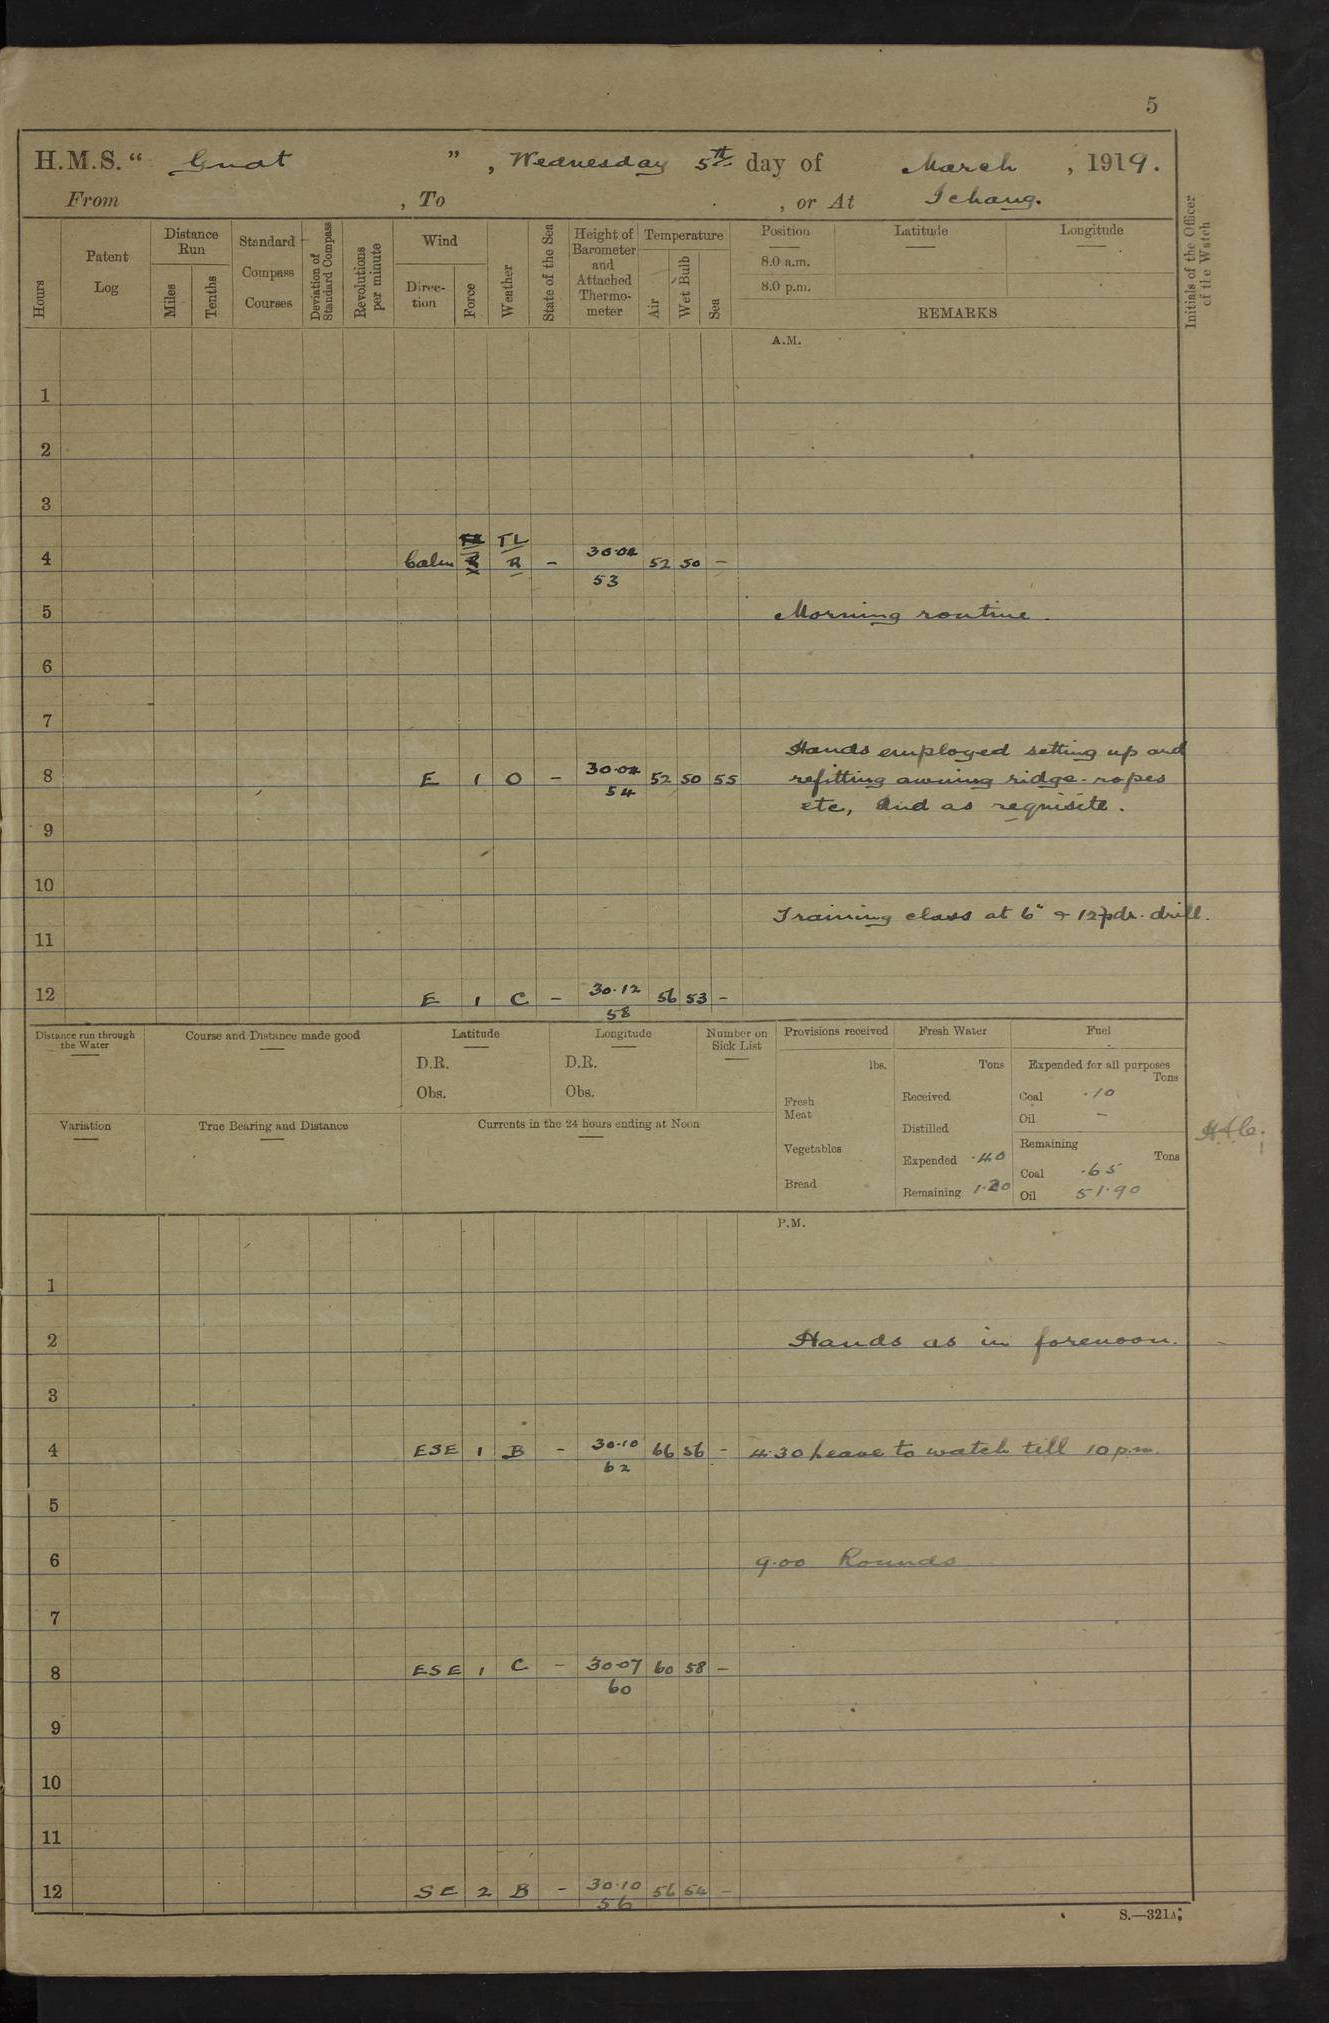 5
H.M.S. “ Gnat ” , Wednesday 5th day of March , 1919.
From , To , or At Ichang.
Hours
Patent Log
Distance Run
Miles
Tenths
Standard Compass Courses
Deviation of Standard Compass
Revolutions per minute
Wind
Direc-tion
Force
Weather
State of the Sea
Height of Barometer and Attached Thermo-meter
Temperature
Air
Wet Bulb
Sea
Position Latitude Longitude
8.0 a.m.
8.0 p.m.
REMARKS
Initials of the Officer of the Watch
A.M.
1
2
3
TL
4 Calm R - 30.02 52 50 -
53
5 Morning routine.
6
7
Hands employed setting up and
8 E 1 O - 30.04 52 50 55 refitting awning ridge-ropes
54 etc, and as requisite.
9
10
Training class at 6" & 12pdr. drill.
11
12 E 1 C - 30.12 56 53 -
58
Distance run through the Water
Course and Distance made good
Latitude
D.R.
Obs.
Longitude
D.R.
Obs.
Number on Sick List
Provisions received
lbs.
Fresh Meat
Vegetables
Bread
Fresh Water
Tons
Received
Distilled
Expended .40
Remaining 1.20
Fuel
Expended for all purposes
Tons
Coal .10
Oil -
Remaining
Tons
Coal .65
Oil 51.90
Variation
True Bearing and Distance
Currents in the 24 hours ending at Noon
P.M.
1
2 Hands as in forenoon.
3
4 ESE 1 B - 30.10 66 56 - 4.30 Leave to watch till 10 p.m.
62
5
6 9.00 Rounds
7
8 ESE 1 C - 30.07 60 58 -
60
9
10
11
12 SE 2 B - 30.10 56 54 -
56
S.—321A;